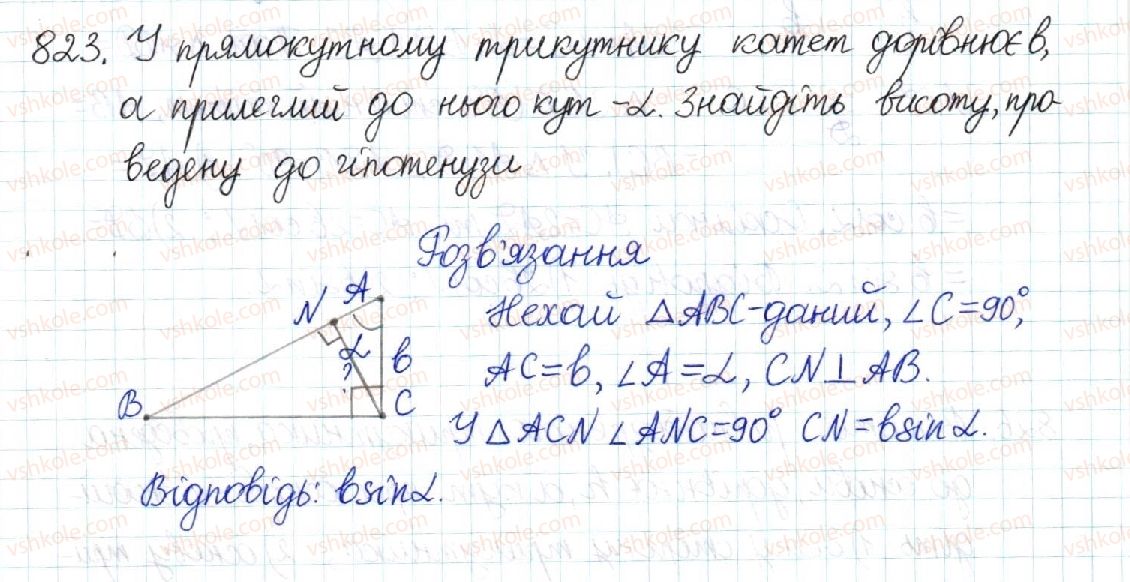 823. У прямокутному трикутнику катет дорівнює b,
а прилеглий до нього кут - α. Знайдіть висоту, про-
ведену до гіпотенузи
Розв'язання
N A
α
b
?
B C
Нехай △ABC - даний, ∠C = 90°,
AC = b, ∠A = α, CN ⊥ AB.
У △ACN ∠ANC = 90° CN = b sin α.
Відповідь: b sin α.